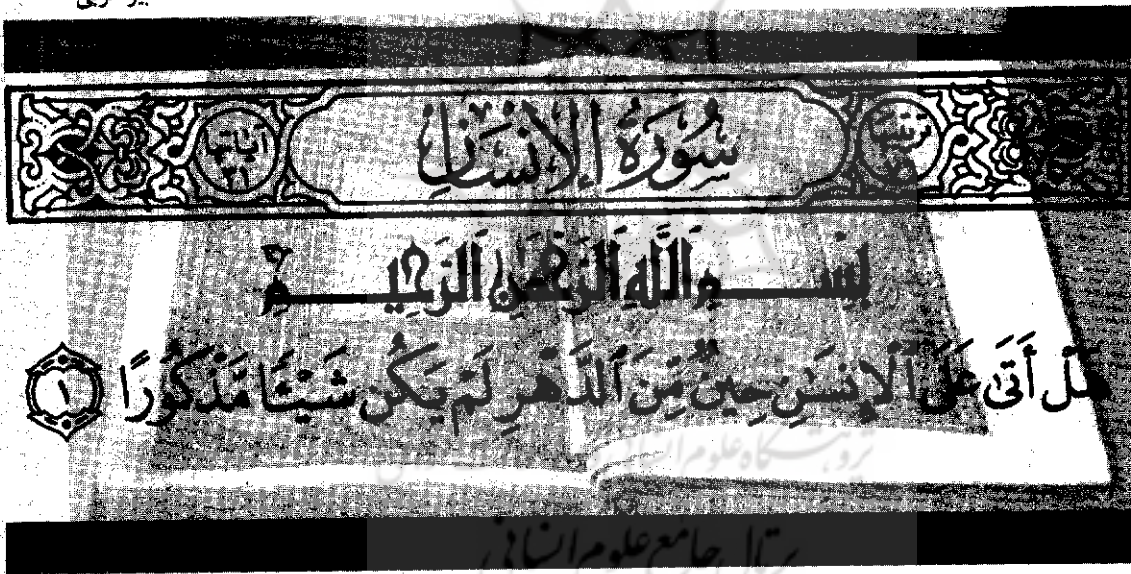 ترتيبها سُورَةُ الْإِنْسَانِ آياتها ٣١
بِسْمِ اللَّهِ الرَّحْمَٰنِ الرَّحِيمِ
هَلْ أَتَىٰ عَلَى ٱلْإِنسَٰنِ حِينٌ مِّنَ ٱلدَّهْرِ لَمْ يَكُن شَيْـًٔا مَّذْكُورًا ١
پژوهشگاه علوم انسانی
پرتال جامع علوم انسانی